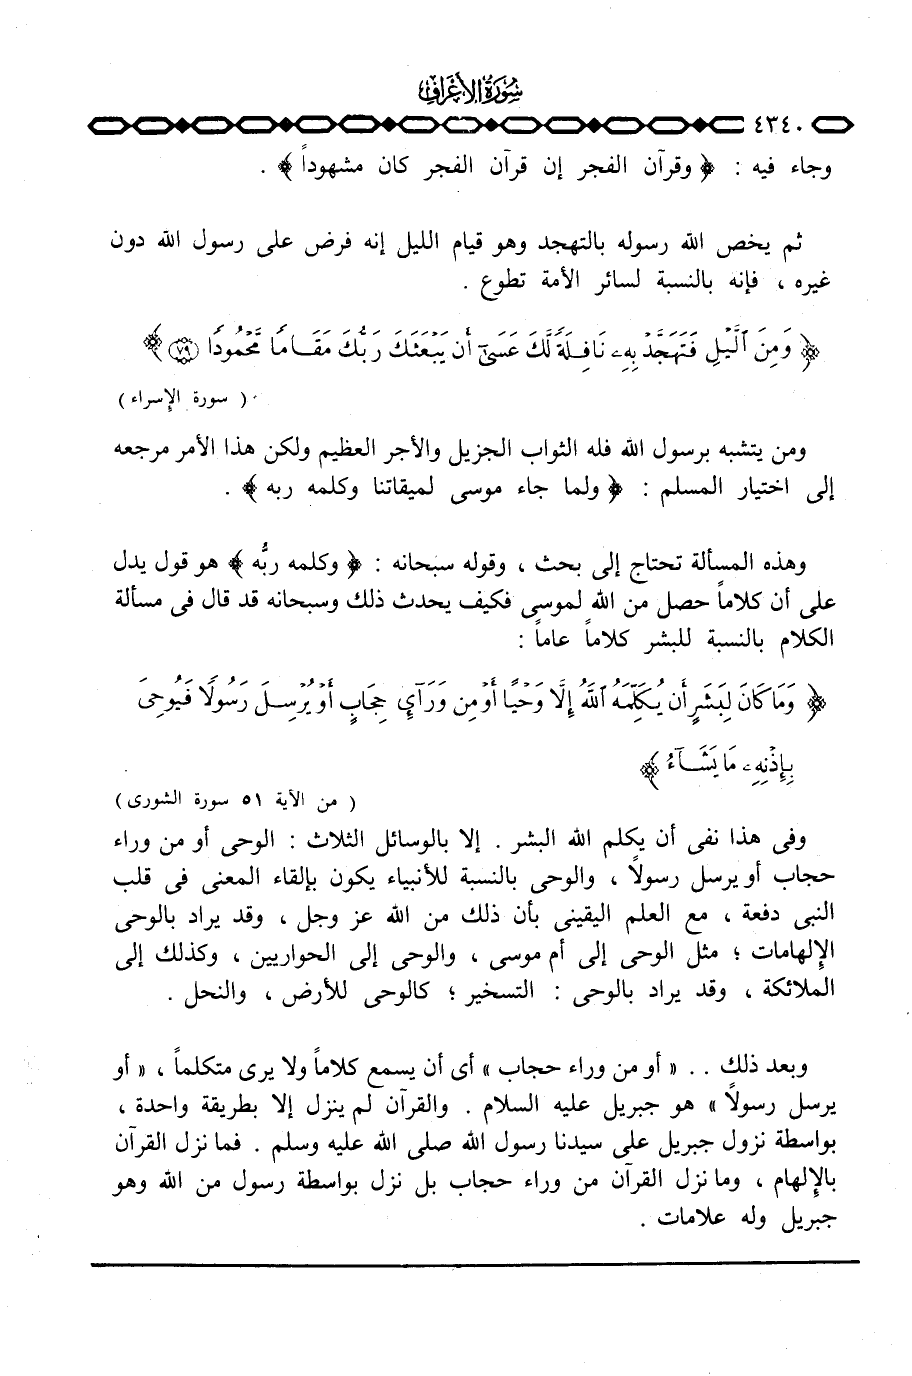 سُورَةُ الأَعْرَافِ
٤٣٤٠
وجاء فيه : ﴿ وقرآن الفجر إن قرآن الفجر كان مشهوداً ﴾ .
ثم يخص الله رسوله بالتهجد وهو قيام الليل إنه فرض على رسول الله دون
غيره ، فإنه بالنسبة لسائر الأمة تطوع .
﴿ وَمِنَ ٱلَّيْلِ فَتَهَجَّدْ بِهِۦ نَافِلَةً لَّكَ عَسَىٰٓ أَن يَبْعَثَكَ رَبُّكَ مَقَامًا مَّحْمُودًا ٧٩ ﴾
( سورة الإسراء )
ومن يتشبه برسول الله فله الثواب الجزيل والأجر العظيم ولكن هذا الأمر مرجعه
إلى اختيار المسلم : ﴿ ولما جاء موسى لميقاتنا وكلمه ربه ﴾ .
وهذه المسألة تحتاج إلى بحث ، وقوله سبحانه : ﴿ وكلمه ربُّه ﴾ هو قول يدل
على أن كلاماً حصل من الله لموسى فكيف يحدث ذلك وسبحانه قد قال فى مسألة
الكلام بالنسبة للبشر كلاماً عاماً :
﴿ وَمَا كَانَ لِبَشَرٍ أَن يُكَلِّمَهُ ٱللَّهُ إِلَّا وَحْيًا أَوْ مِن وَرَآيِٕ حِجَابٍ أَوْ يُرْسِلَ رَسُولًا فَيُوحِىَ
بِإِذْنِهِۦ مَا يَشَآءُ ﴾
( من الآية ٥١ سورة الشورى )
وفى هذا نفى أن يكلم الله البشر . إلا بالوسائل الثلاث : الوحى أو من وراء
حجاب أو يرسل رسولاً ، والوحى بالنسبة للأنبياء يكون بإلقاء المعنى فى قلب
النبى دفعة ، مع العلم اليقينى بأن ذلك من الله عز وجل ، وقد يراد بالوحى
الإلهامات ؛ مثل الوحى إلى أم موسى ، والوحى إلى الحواريين ، وكذلك إلى
الملائكة ، وقد يراد بالوحى : التسخير ؛ كالوحى للأرض ، والنحل .
وبعد ذلك . . « أو من وراء حجاب » أى أن يسمع كلاماً ولا يرى متكلماً ، « أو
يرسل رسولاً » هو جبريل عليه السلام . والقرآن لم ينزل إلا بطريقة واحدة ،
بواسطة نزول جبريل على سيدنا رسول الله صلى الله عليه وسلم . فما نزل القرآن
بالإلهام ، وما نزل القرآن من وراء حجاب بل نزل بواسطة رسول من الله وهو
جبريل وله علامات .